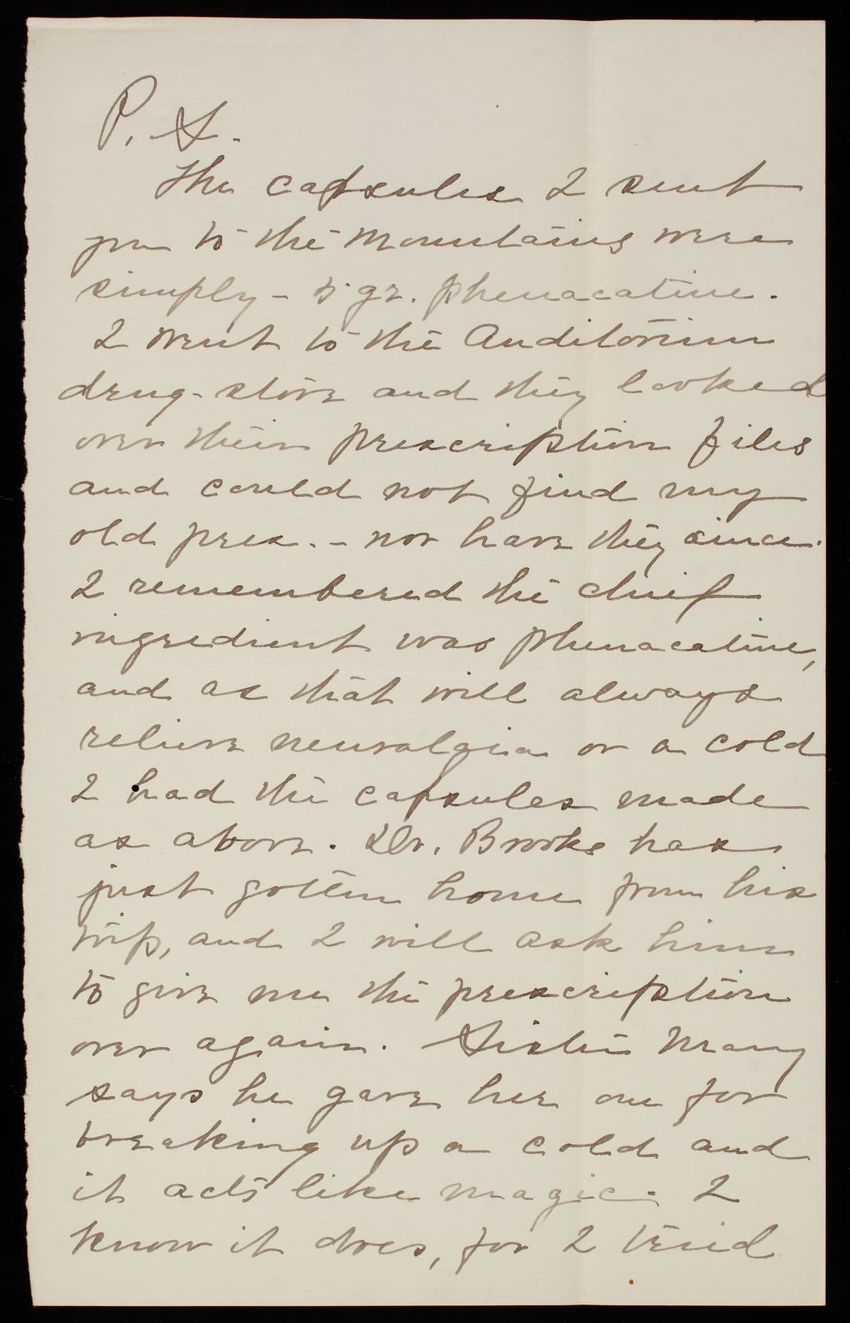 P. S.
The capsules I sent
you to the Mountains were
simply - 5 gr. phenacatine.
I went to the Auditorium
drug-store and they looked
over their prescription files
and could not find my
old pres. - nor have they since.
I remembered the chief
ingredient was phenacatine,
and as that will always
relieve neuralgia or a cold
I had the capsules made
as above. Dr. Brooke has
just gotten home from his
trip, and I will ask him
to give me the prescription
over again. Sister Mary
says he gave her one for
breaking up a cold and
it acts like magic. I
know it does, for I tried